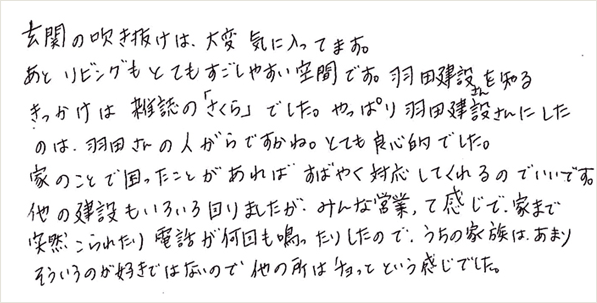 玄関の吹き抜けは、大変気に入ってます。
あと リビングもとてもすごしやすい空間です。羽田建設さんを知る
きっかけは 雑誌の「さくら」でした。やっぱり羽田建設さんにした
のは、羽田さんの人がらですかね。とても良心的でした。
家のことで困ったことがあれば すばやく対応してくれるのでいいです。
他の建設もいろいろ回りましたが、みんな営業って感じで、家まで
突然こられたり 電話が何回も鳴ったりしたので、うちの家族は、あまり
そういうのが好きではないので 他の所はチョっと という感じでした。